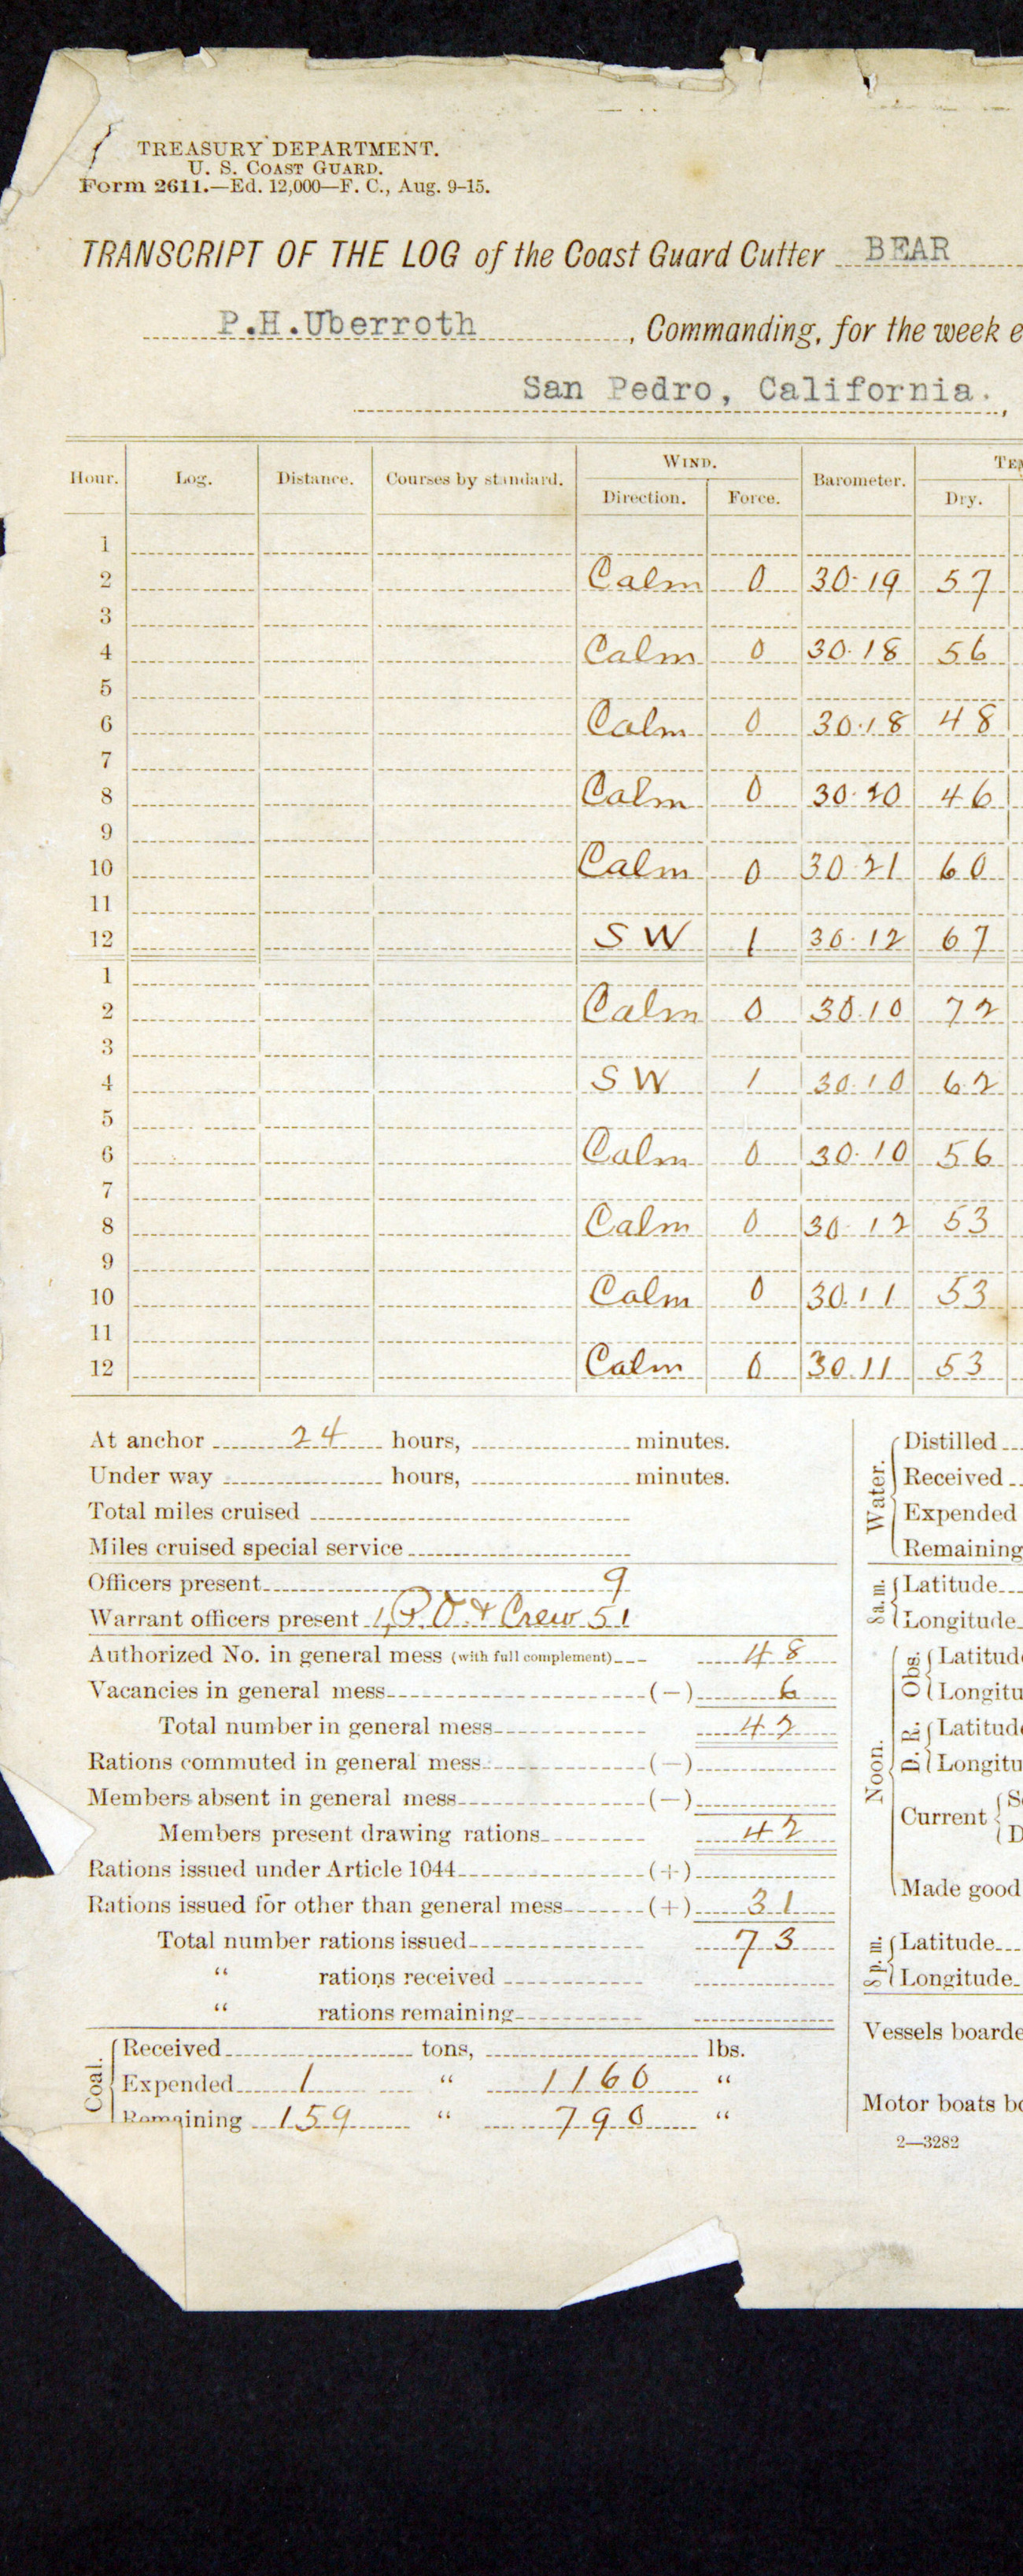 TREASURY DEPARTMENT.
U. S. COAST GUARD.
Form 2611.—Ed. 12,000—F. C., Aug. 9–15.
TRANSCRIPT OF THE LOG of the Coast Guard Cutter BEAR
P.H.Uberroth, Commanding, for the week e
San Pedro, California.,
Hour. Log. Distance. Courses by standard. WIND. Barometer. TEM
Direction. Force. Dry.
1
2 Calm 0 30.19 57
3
4 Calm 0 30.18 56
5
6 Calm 0 30.18 48
7
8 Calm 0 30.20 46
9
10 Calm 0 30.21 60
11
12 SW 1 30.12 67
1
2 Calm 0 30.10 72
3
4 SW 1 30.10 62
5
6 Calm 0 30.10 56
7
8 Calm 0 30.12 53
9
10 Calm 0 30.11 53
11
12 Calm 0 30.11 53
At anchor 24 hours, minutes.
Under way hours, minutes.
Total miles cruised
Miles cruised special service
Officers present 9
Warrant officers present 1, P.O. & Crew 51
Authorized No. in general mess (with full complement) 48
Vacancies in general mess (—) 6
Total number in general mess 42
Rations commuted in general mess (—)
Members absent in general mess (—)
Members present drawing rations 42
Rations issued under Article 1044 (+)
Rations issued for other than general mess (+) 31
Total number rations issued 73
“ rations received
“ rations remaining
Coal. Received tons, lbs.
Expended 1 “ 1160 “
Remaining 159 “ 790 “
Water. Distilled
Received
Expended
Remaining
8 a.m. Latitude
Longitude
Noon. Obs. Latitude
Longitu
D. R. Latitud
Longitu
Current S
D
Made good
8 p.m. Latitude
Longitude
Vessels boarde
Motor boats bo
2—3282